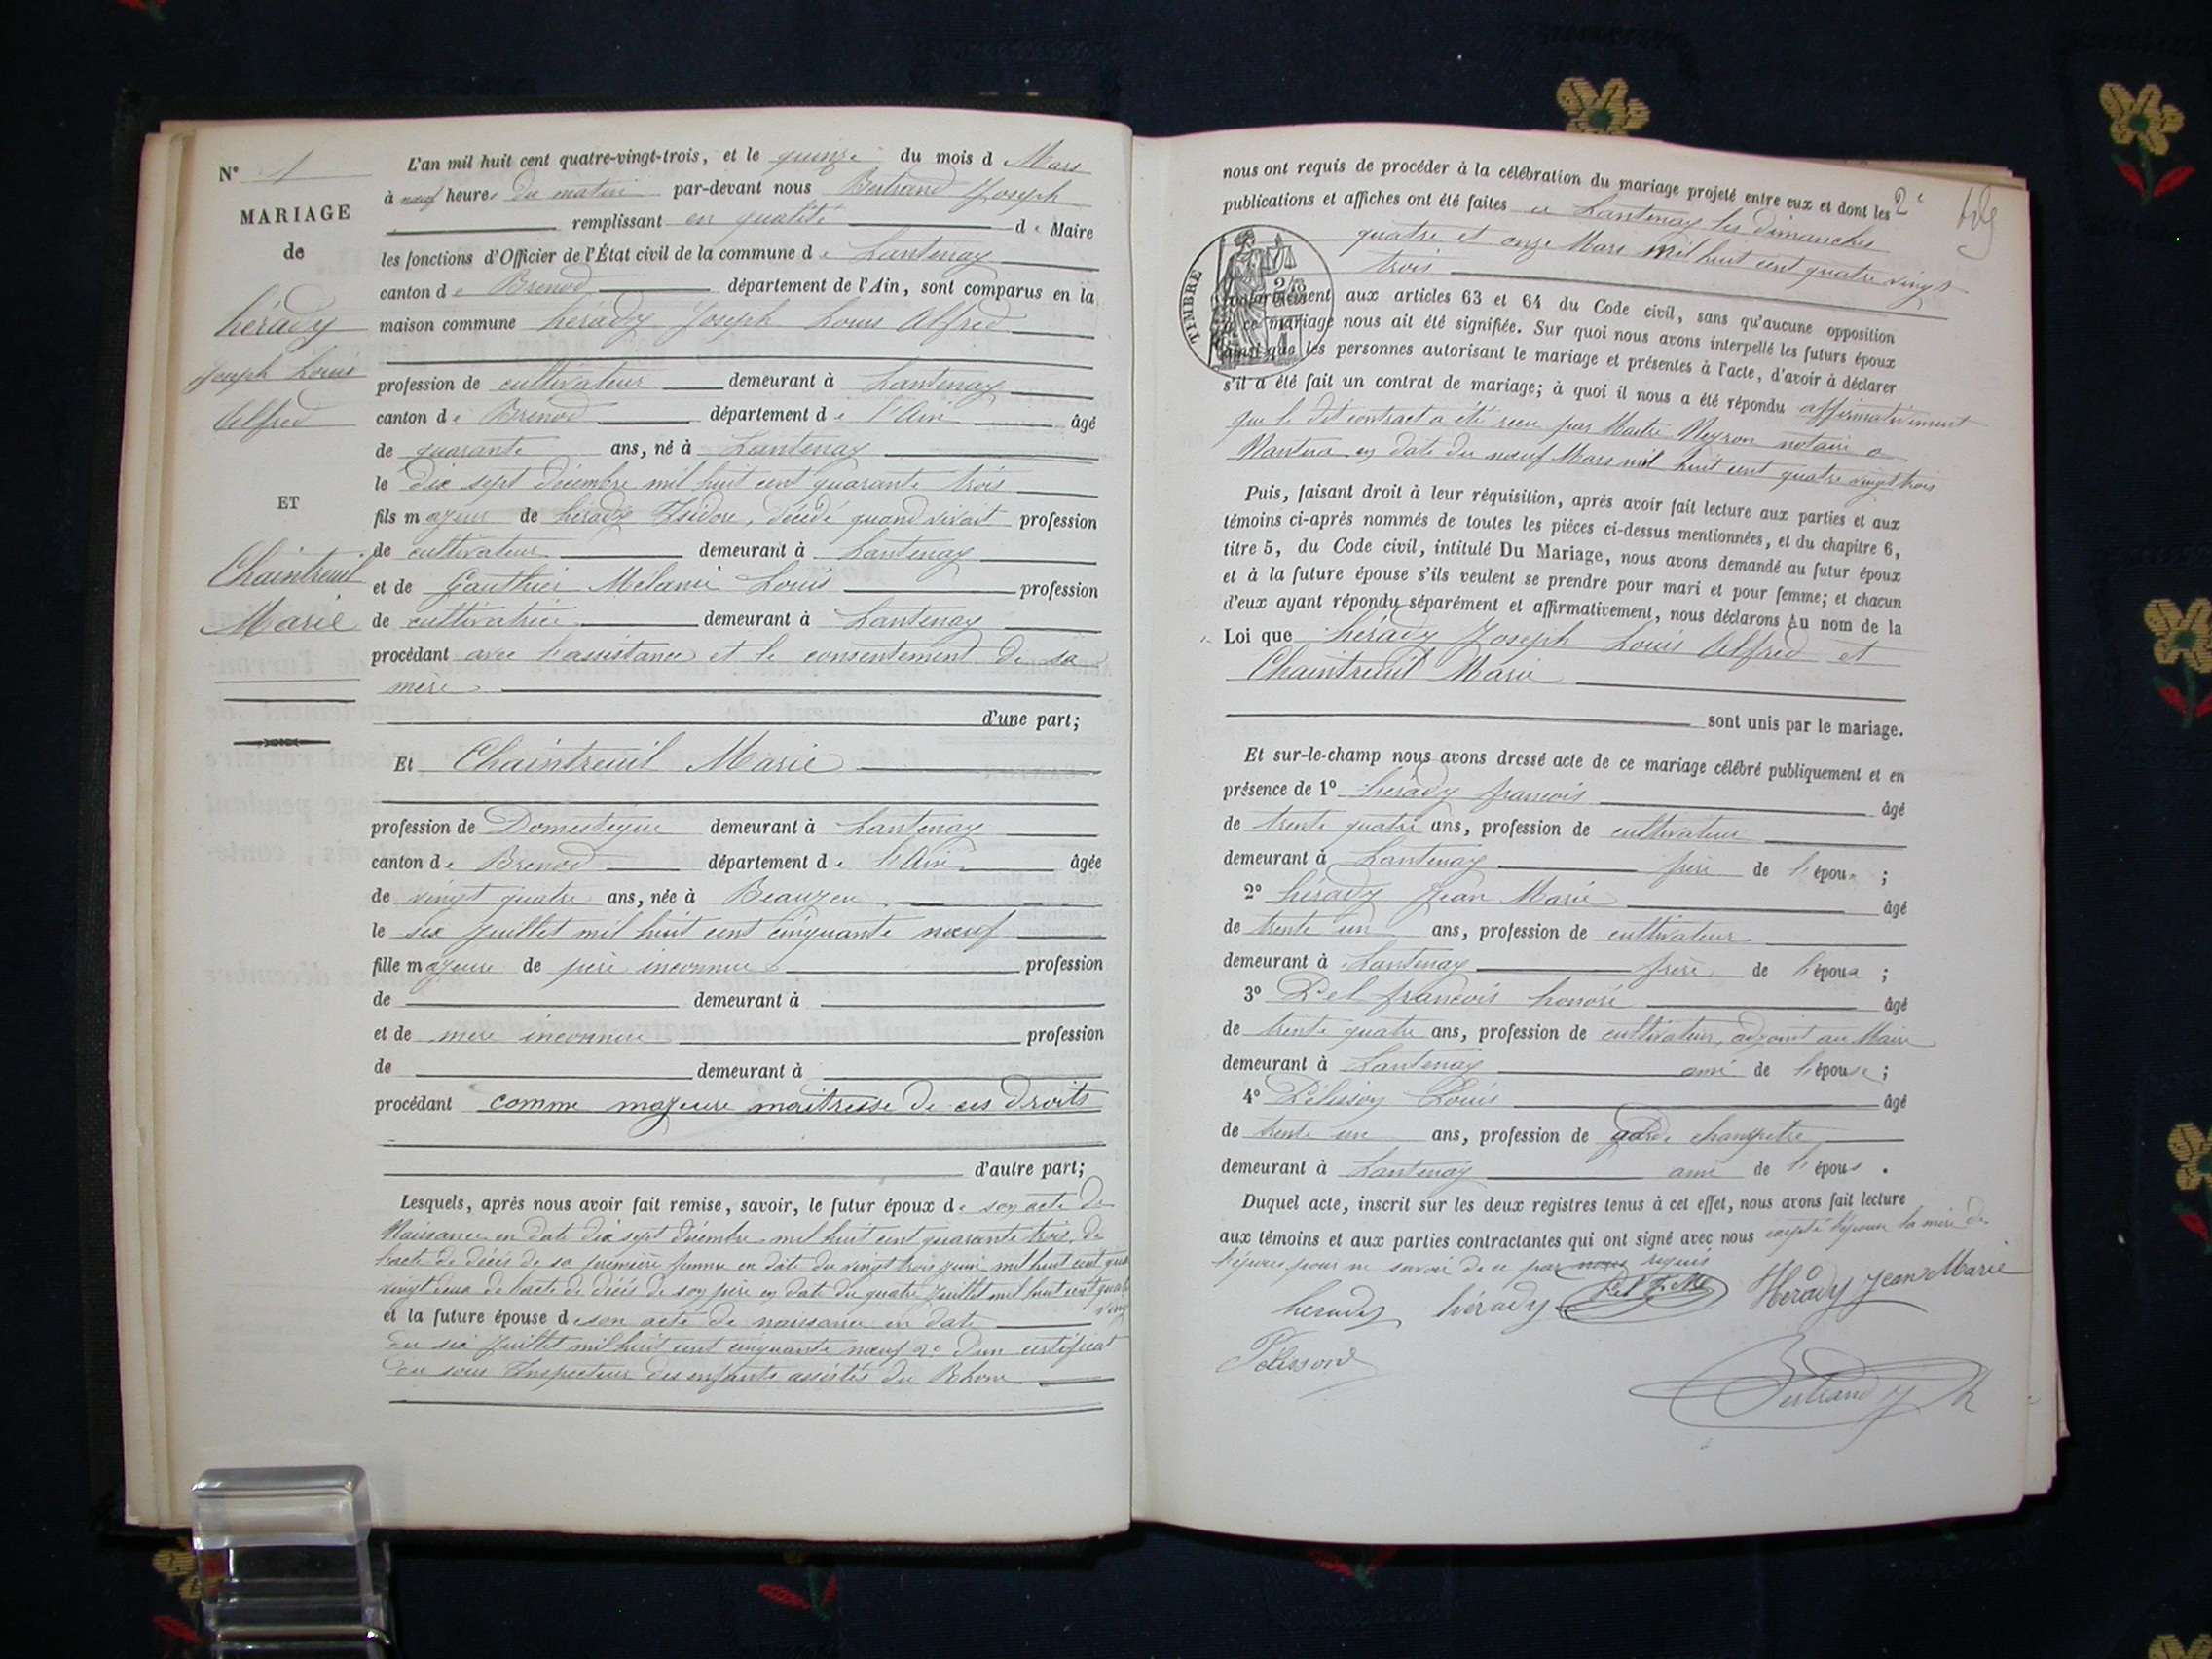 N° 1
MARIAGE
de
hérady
Joseph Louis
Alfred
ET
Chaintreuil
Marie
L'an mil huit cent quatre-vingt-trois, et le quinze du mois d Mars
à neuf heures du matin par-devant nous Bertrand Joseph
remplissant en qualité de Maire
les fonctions d'Officier de l'État civil de la commune de Lantenay
canton de Brenod département de l'Ain, sont comparus en la
maison commune hérady Joseph Louis Alfred
profession de cultivateur demeurant à Lantenay
canton de Brenod département de l'Ain âgé
de quarante ans, né à Lantenay
le dix sept Décembre mil huit cent quarante trois
fils majeur de hérady Isidore, décédé quand vivait profession
de cultivateur demeurant à Lantenay
et de Gauthier Mélanie Louis profession
de cultivatrice demeurant à Lantenay
procédant avec l'assistance et le consentement de sa
mère
d'une part;
Et Chaintreuil Marie
profession de Domestique demeurant à Lantenay
canton de Brenod département de l'Ain âgée
de vingt quatre ans, née à Beauzen
le six Juillet mil huit cent cinquante nœuf
fille majeure de père inconnue profession
de demeurant à
et de mere inconnue profession
de demeurant à
procédant comme majeure maitresse de ces droits
d'autre part;
Lesquels, après nous avoir fait remise, savoir, le futur époux de son acte de
Naissance en date dix sept Décembre mil huit cent quarante trois, de
l'acte de décès de sa première femme en date du vingt trois juin mil huit cent quatre
vingt deux de l'acte de décès de son père en date du quatre Juillet mil huit cent quatre
vingt
et la future épouse de son acte de naissance en date
du six Juillet mil huit cent cinquante nœuf 2° d'un certificat
du sous Inspecteur des enfants assistés du Rhone
nous ont requis de procéder à la célébration du mariage projeté entre eux et dont les 2e
publications et affiches ont été faites a Lantenay les dimanches
quatre et onze Mars mil huit cent quatre vingt
trois
TIMBRE
conformément aux articles 63 et 64 du Code civil, sans qu'aucune opposition
à ce mariage nous ait été signifiée. Sur quoi nous avons interpellé les futurs époux
ainsi que les personnes autorisant le mariage et présentes à l'acte, d'avoir à déclarer
s'il a été fait un contrat de mariage; à quoi il nous a été répondu affirmativement
que le dit contract a été recu par Maitre Neyron notaire a
Nantua en date du nœuf Mars mil huit cent quatre vingt trois
Puis, faisant droit à leur réquisition, après avoir fait lecture aux parties et aux
témoins ci-après nommés de toutes les pièces ci-dessus mentionnées, et du chapitre 6,
titre 5, du Code civil, intitulé Du Mariage, nous avons demandé au futur époux
et à la future épouse s'ils veulent se prendre pour mari et pour femme; et chacun
d'eux ayant répondu séparément et affirmativement, nous déclarons Au nom de la
Loi que hérady Joseph Louis Alfred et
Chaintreuil Marie
sont unis par le mariage.
Et sur-le-champ nous avons dressé acte de ce mariage célébré publiquement et en
présence de 1° hérady francois âgé
de trente quatre ans, profession de cultivateur
demeurant à Lantenay frère de l'époux ;
2° hérady Jean Marie âgé
de trente un ans, profession de cultivateur
demeurant à Lantenay frère de l'époux ;
3° Pel francois honoré âgé
de trente quatre ans, profession de cultivateur, adjoint au Maire
demeurant à Lantenay ami de l'épouse ;
4° Pélisson Louis âgé
de trente un ans, profession de garde champetre
demeurant à Lantenay ami de l'épous .
Duquel acte, inscrit sur les deux registres tenus à cet effet, nous avons fait lecture
aux témoins et aux parties contractantes qui ont signé avec nous excepté l'épouse la mère de
l'époux pour ne savoir de ce par nous requis
herady hérady Pel Hérady Jean Marie
Pélisson
Bertrand Jh